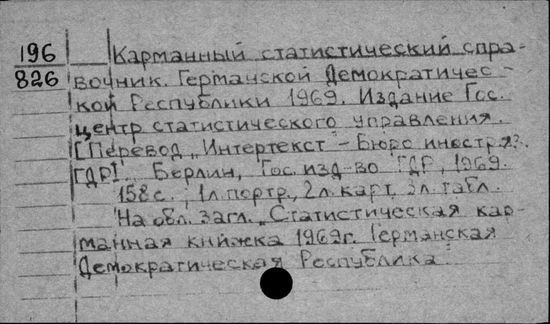 196 Карманный статистический спра-
826 вочник. Германской Демократичес-
кой Республики 1969. Издание Гос.
центр статистического управления.
[Перевод „Интертекст" - Бюро иностр яз.
ГДР]. Берлин, Гос. изд-во ГДР, 1969.
158 с., 1л. портр., 2л. карт, 3л. табл.
На обл. загл. „Статистическая кар-
манная книжка 1969г. Германская
Демократическая Республика"